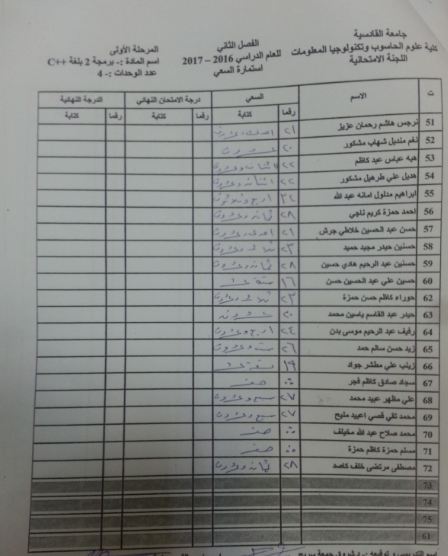 جامعة القادسية
كلية علوم الحاسوب وتكنولوجيا المعلومات
اللجنة الامتحانية
الفصل الثاني
للعام الدراسي 2016 – 2017
استمارة السعي
المرحلة الأولى
اسم المادة :- برمجة 2 بلغة C++
عدد الوحدات :- 4
ت الاسم السعي درجة الامتحان النهائي الدرجة النهائية
رقما كتابة رقما كتابة رقما كتابة
51 نرجس هاشم رحمان عزيز ٢١ احدى وعشرون
52 نغم منديل شهاب مشكور ٢٠ عشرون
53 هبه عباس عبد كاظم ٢٢ اثنان وعشرون
54 هديل علي طرهيل مشكور ٢٢ اثنان وعشرون
55 ابراهيم مدلول امانه عبد الله ٣٤ اربع وثلاثون
56 احمد حمزة كريم ناجي ٢٨ ثمان وعشرون
57 حسن عبد الحسين خلاطي جرش ٢١ احدى وعشرون
58 حسنين حيدر مجيد حميد ٢٣ ثلاث وعشرون
59 حسنين عبد الرحيم هادي حسين ٢٨ ثمان وعشرون
60 حسين علي عبد الحسين حسن ١٦ ستة عشر
62 حوراء كاظم حسن حمزة ٢٣ ثلاث وعشرون
63 حيدر عبد القاسم ياسين محمد ٢٠ عشرون
64 رفيف عبد الرحيم موسى بدن ٢٤ اربع وعشرون
65 زيد حسن سالم حمد ٢٦ ست وعشرون
66 زينب علي مطشر جواد ١٩ تسعة عشر
67 سجاد صادق كاظم فجر صفر
68 علي مظهر عبيد محمد ٢٧ سبع وعشرون
69 محمد تقي قصي اعبيد مليح ٢٧ سبع وعشرون
70 محمد صلاح عبد الله مخيلف صفر
71 مسلم حمزة كاظم حمزة صفر
72 مصطفى مرتضى خلف كاصد ٢٨ ثمان وعشرون
73
74
75
61